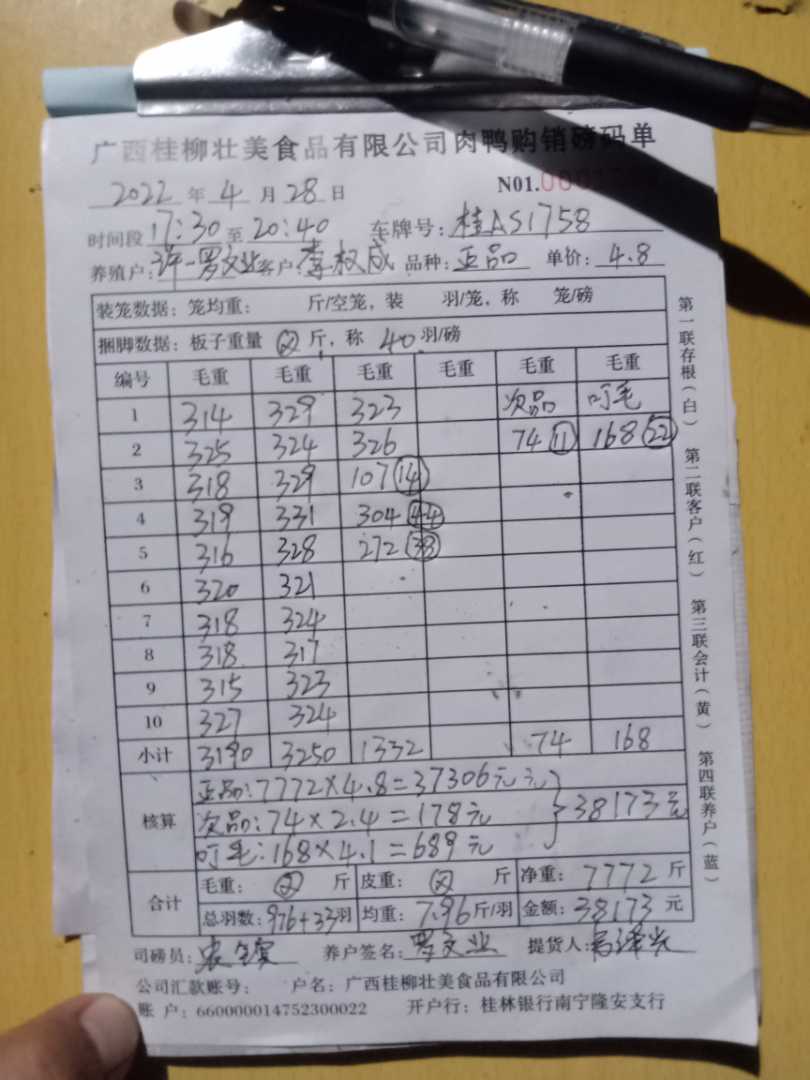 广西桂柳壮美食品有限公司肉鸭购销磅码单
2022 年 4 月 28 日 N01.
时间段 17:30 至 20:40 车牌号: 桂AS1758
养殖户: 许-罗文业 客户: 李权成 品种: 正品 单价: 4.8
装笼数据: 笼均重: 斤/空笼, 装 羽/笼, 称 笼/磅
捆脚数据: 板子重量 斤, 称 40 羽/磅
编号 毛重 毛重 毛重 毛重 毛重 毛重
1 314 329 323 次品 叮毛
2 325 324 326 74 11 168 22
3 318 329 107 14
4 319 331 304 44
5 316 328 272 38
6 320 321
7 318 324
8 318 317
9 315 323
10 327 324
小计 3190 3250 1332 74 168
核算 正品:7772×4.8=37306元
次品:74×2.4=178元 38173元
叮毛:168×4.1=689元
合计 毛重: 斤 皮重: 斤 净重: 7772 斤
总羽数: 976+33羽 均重: 7.96斤/羽 金额: 38173 元
司磅员: 养户签名: 罗文业 提货人:
公司汇款账号: 户名: 广西桂柳壮美食品有限公司
账户: 660000014752300022 开户行: 桂林银行南宁隆安支行
第一联存根(白) 第二联客户(红) 第三联会计(黄) 第四联养户(蓝)